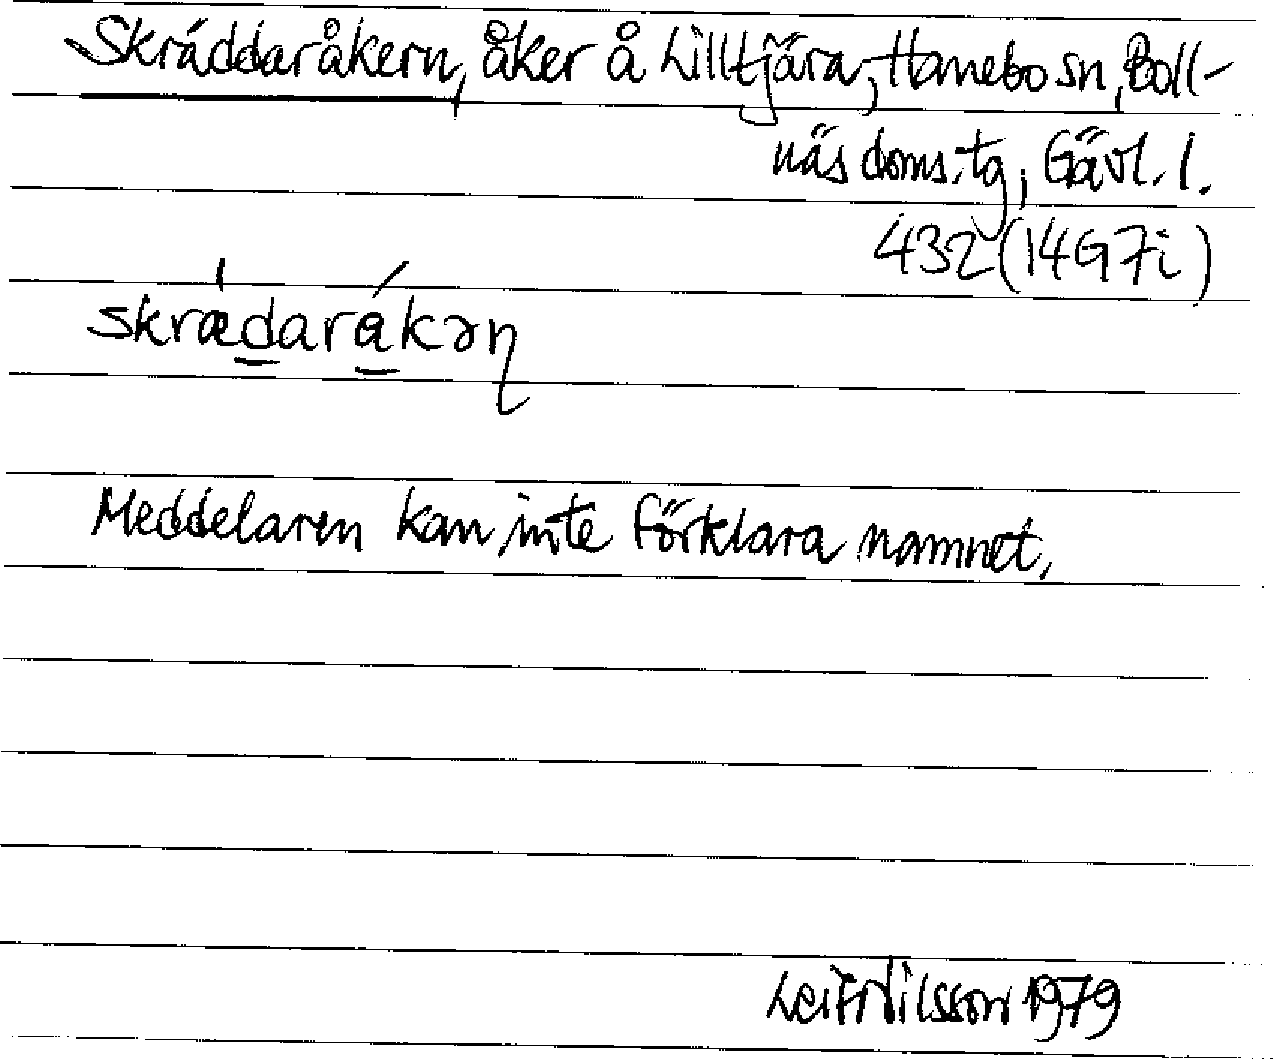 Skräddaråkern, åker å Lilltjära, Hanebo sn, Boll-
näs doms:tg, Gävl. l.
432 (14G7i)
skrædaråkəɳ
Meddelaren kan inte förklara namnet.
Leif Nilsson 1979